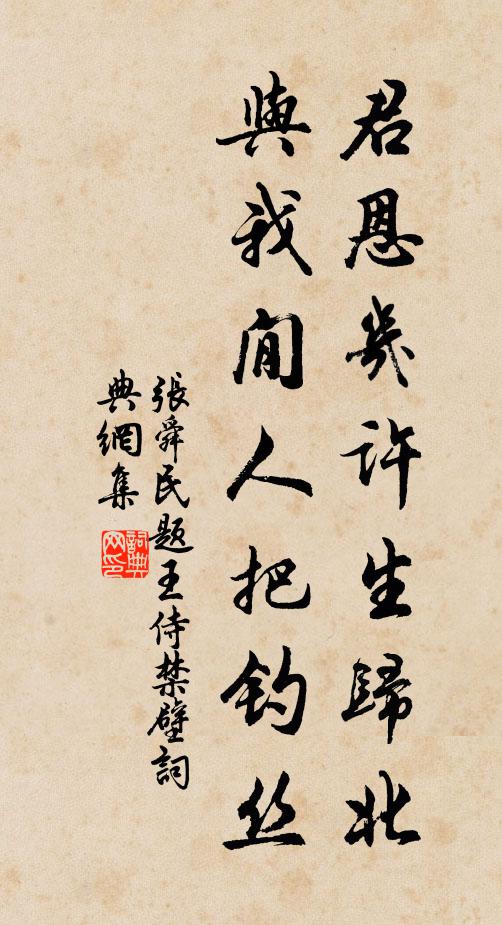 君恩幾許生歸北
與我閒人把釣丝
張舜民题王侍禁壁詞
典網集
詞典网印